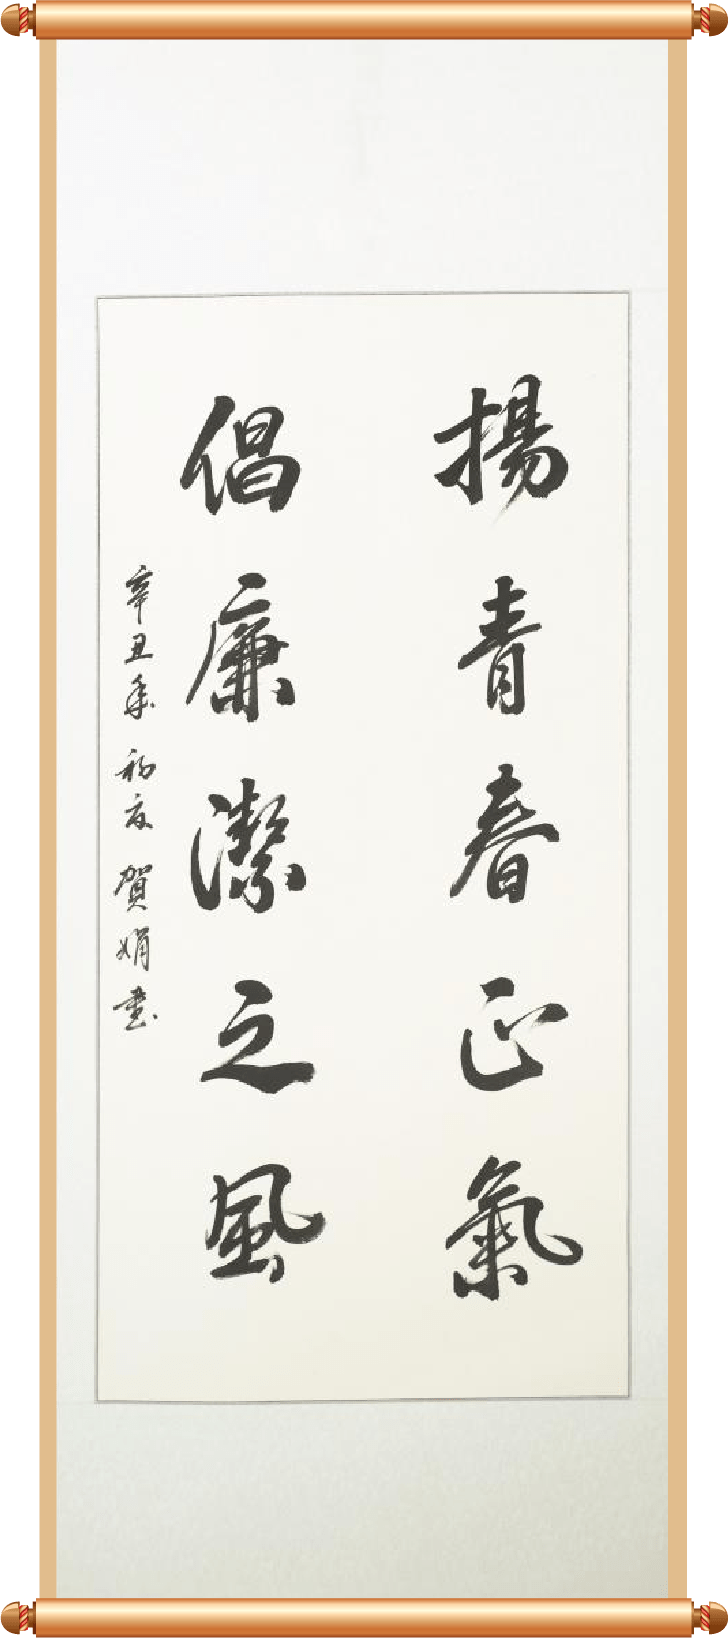 揚青春正氣
倡廉潔之風
辛丑年初夏賀娟書